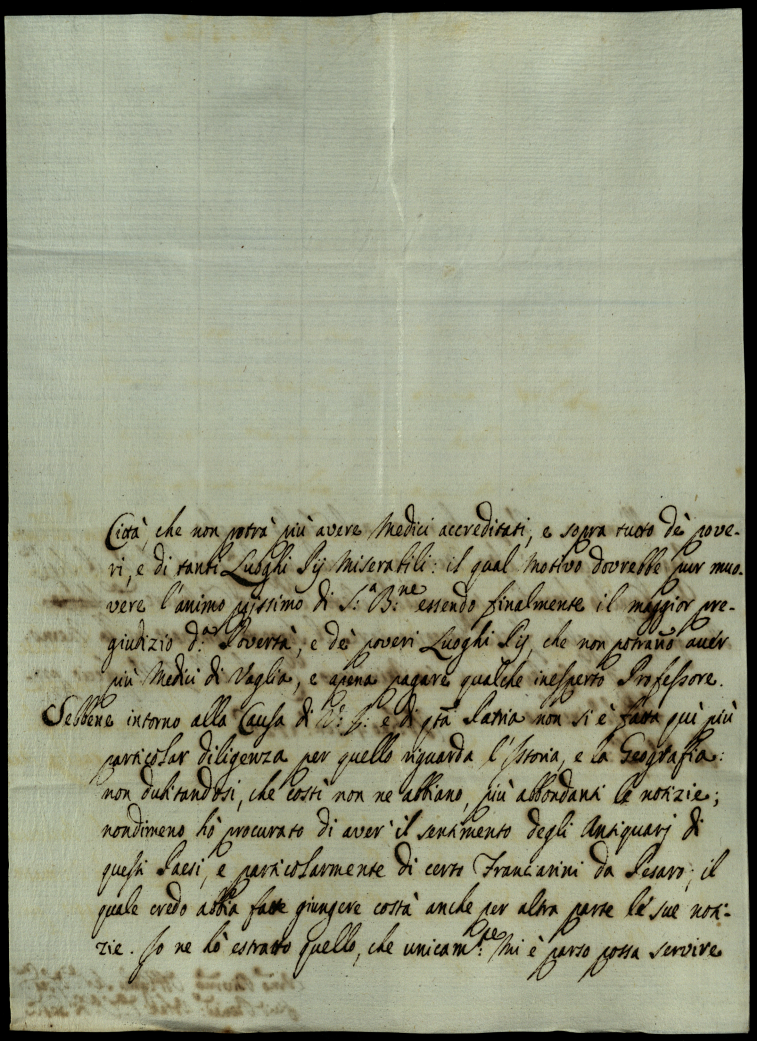 Città, che non potrà più avere Medici accreditati, e sopra tutto dè pove-
ri, e di tanti Luoghi Pij Miserabili: il qual Motivo dovrebbe pur muo-
vere l'animo piissimo di S:ᵃ B:ⁿᵉ essendo finalmente il maggior pre-
giudizio d:ᵃ Povertà, e dè poveri Luoghi Pij, che non potrano aver
più Medici di Vaglia, e apena pagare qualche inesperto Professore.
Sebbene intorno alla Causa di V: S: e di qtã Patria non si è fatta quì più
particolar diligenza per quello riguarda l'Istoria, e la Geografia:
non dubitandosi, che costì non ne abbiano più abbondanti le notizie;
nondimeno hò procurato di aver' il sentimento degli Antiquarj di
questi Paesi, e particolarmente di certo Francarini da Pesaro; il
quale credo abbia fatte giungere costà anche per altra parte le sue noti-
zie. Io ne hò estratto quello, che unicam:ᵗᵉ Mi è parso possa servire